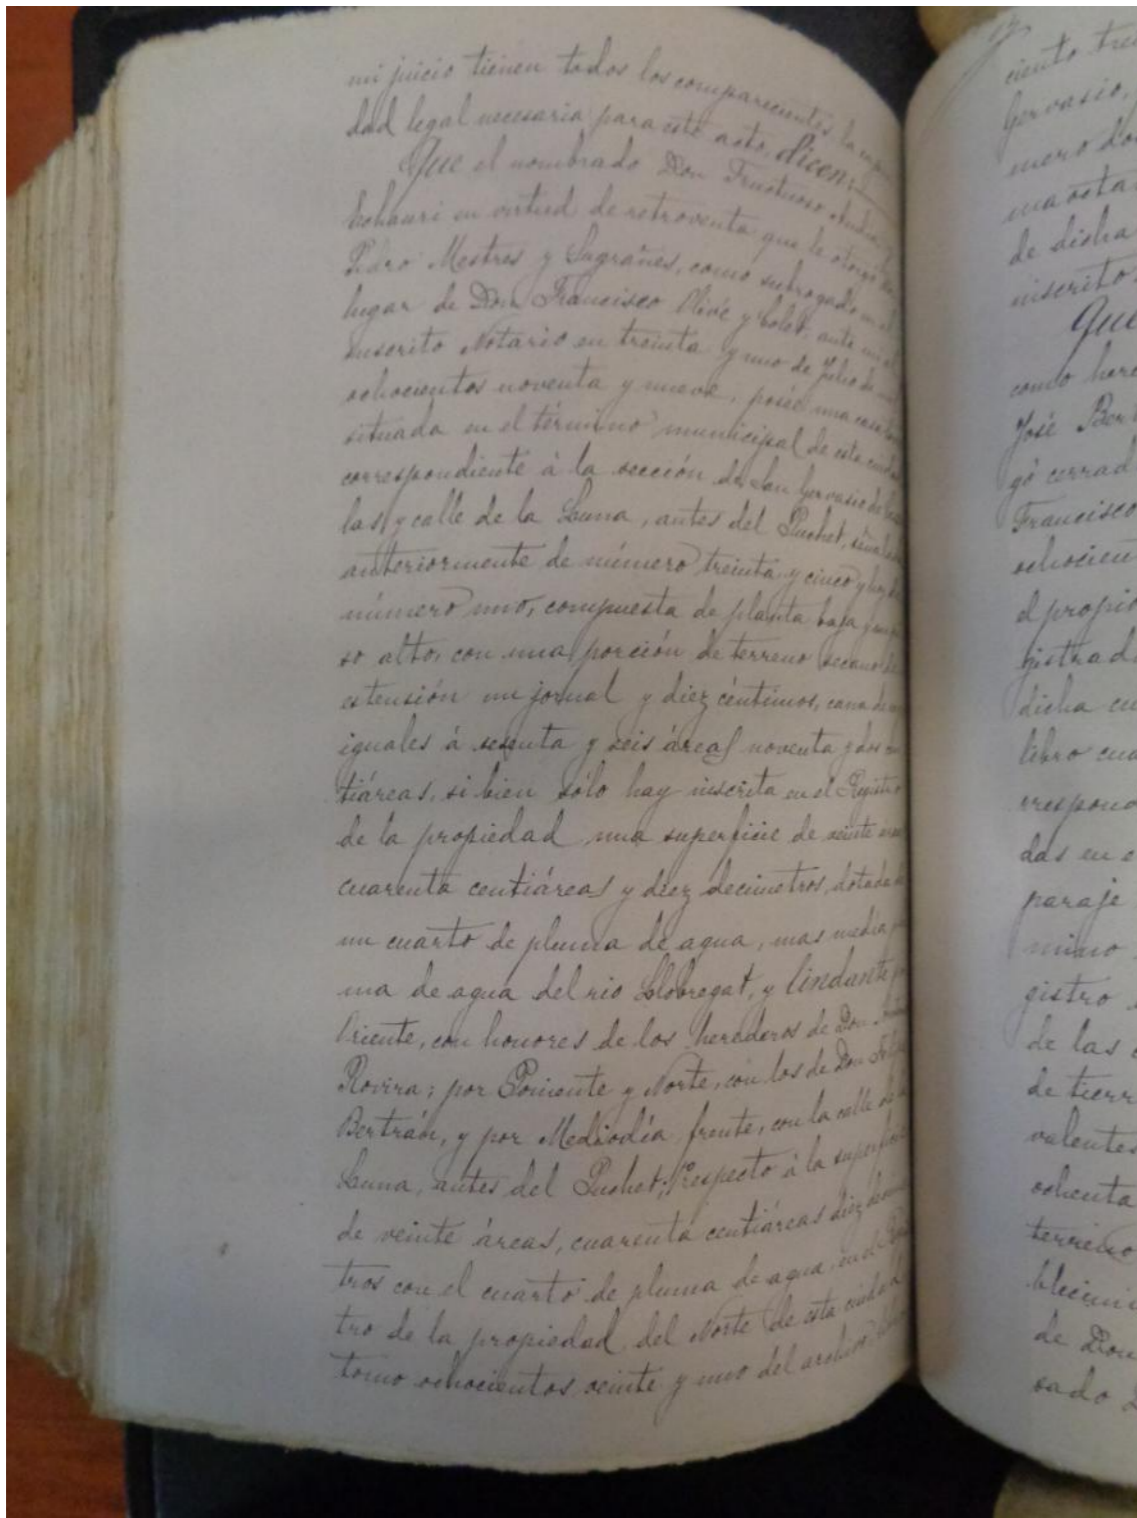 mi juicio tienen todos los comparecientes, la capaci
dad legal necesaria para este acto, dicen:
Que el nombrado Don Fructuoso Andia
en virtud de retroventa que le otorgó Don
Pedro Mestres y Sagrañes, como subrogado en el
lugar de Don Francisco Olivé y Bolet, ante mi el
suscrito Notario en treinta y uno de Julio de mil
ochocientos noventa y nueve, posée una casa
situada en el término municipal de esta ciudad
correspondiente á la sección de San Gervasio de Caso
las, y calle de la Luna, antes del Puchet, señalada
anteriormente de número treinta y cinco y hoy de
número uno, compuesta de planta baja y un pi
so alto, con una porción de terreno secano de
estensión un jornal y diez céntimos, cana de
iguales á sesenta y seis áreas noventa y dos cen
tiáreas, si bien sólo hay inscrita en el Registro
de la propiedad una superficie de veinte áreas
cuarenta centiáreas y diez decimetros, dotada de
un cuarto de pluma de agua, mas media plu
ma de agua del rio Llobregat, y lindante por
Oriente, con honores de los herederos de Don
Rovira; por Poniente y Norte, con los de Don Felipe
Bertrán, y por Mediodía frente, con la calle de la
Luna, antes del Puchet; Respecto á la superficie
de veinte áreas, cuarenta centiáreas diez decime
tros con el cuarto de pluma de agua, en el Regis
tro de la propiedad del Norte de esta ciudad
tomo ochocientos veinte y uno del archivo
ciento
Gervasio,
mero
de dicha
inscrito
Que
como here
José Ber
gó cerrad
Francisco
ochocien
el propio
gistrad
dicha
libro cua
rrespond
das en e
paraje
mino
gistro
de las
de tierr
valentes
ochenta
terreno
blecimi
de Don
sado